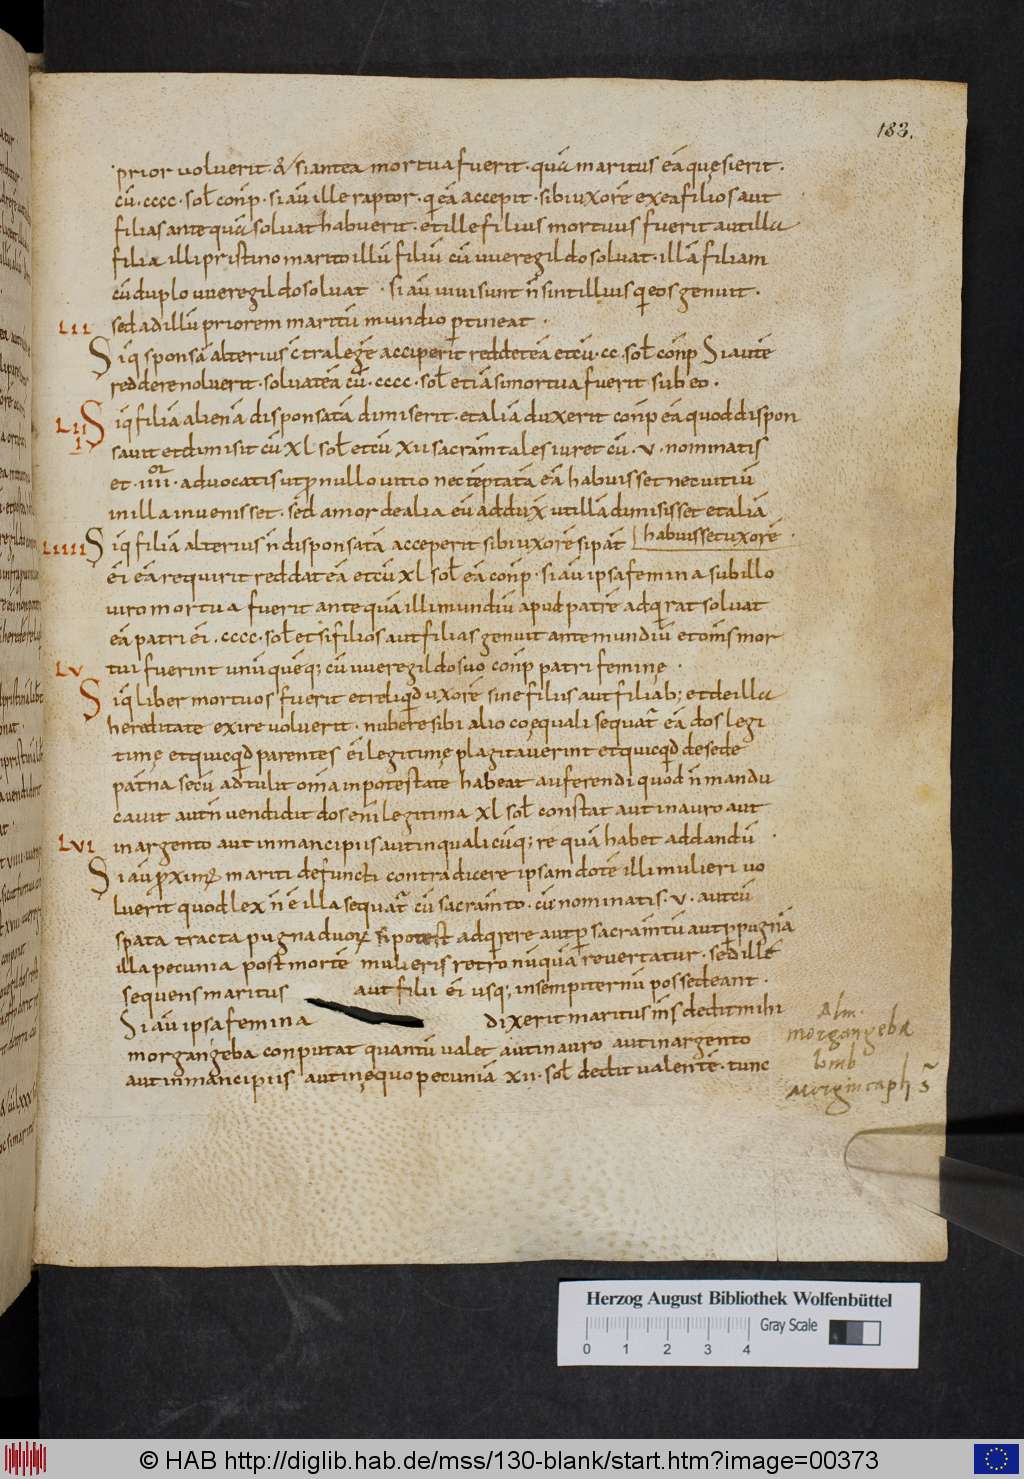 183.
prior voluerit. & si antea mortua fuerit. quā maritus eā quęsierit.
cū. cccc. sol̄. conp̄. si aū ille raptor. qi eā accepit. sibi uxorē ex ea filios aut
filias antequā soluat habuerit. et ille filius mortuus fuerit aut illa
filia illi pristino marito illū filiū cū uueregildo soluat. illā filiam
cū duplo uueregildo soluat. si aū uiui sunt n̄ sint illius qi eos genuit.
LII sed ad illū priorem maritū mundio ꝑtineat.
Si q̄ sponsā alterius c̄tra legē acciperit reddet eā et cū. cc. sol̄ conp̄ Si autē
reddere noluerit. soluat eā cū. cccc. sol̄ et iā si mortua fuerit sub eo.
LIII Si q̄ filiā alienā disponsatā dimiserit. et aliā duxerit conp̄ eā quod dispon
sauit et dimisit cū XL sol̄ et cū XII sacram̄tales iuret cū. v. nominatis
et. IIII or. aduocatis ut ꝓ nullo uitio nec tēptatā eā habuisset nec uitiū
in illa inuenisset. sed amor de alia eū adduxit ut illā dimisisset et aliā
habuisset uxorē.
LIIII Si q̄ filiā alterius n̄ disponsatā acceperit sibi uxorē si pat̄
ei eā requirit reddat eā et cū XL sol̄ eā conp̄. si aū ipsa femina sub illo
uiro mortua fuerit antequā illi mundiū apud patrē adq̄rat soluat
eā patri ei. cccc. sol̄ et si filios aut filias genuit ante mundiū et om̄s mor
LV tui fuerint unū quēq; cū uueregildo suo conp̄ patri feminę.
Si q̄ liber mortuos fuerit et reliq̄d uxorē sine filiis aut filiab; et de illa
hereditate exire uoluerit. nubere sibi alio coęquali sequat̄ eā dos legi
timę et quicq̄d parentes ei legitimę plagitauerint et quicq̄d de sede
pat̄na secū adtulit om̄a in potestate habeat auferendi quod n̄ mandu
cauit aut n̄ uendidit dos eni legitima XL sol̄ constat aut in auro aut
LVI in argento aut in mancipiis aut in quali cūq; re quā habet ad dandū.
Si aū ꝓximę mariti defuncti contradicere ipsam dotē illi mulieri uo
luerit quod lex n̄ ē illa sequat̄ cū sacram̄to. cū nominatis. v. aut cū
spata tracta pugna duorꝝ si potest adq̄rere aut ꝑ sacram̄tū aut ꝑ pugnā
illa pecunia post mortē mulieris retro nūquā reuertatur. sed ille
sequens maritus aut filii ei usq; in sempiternū possedeant.
Si aū ipsa femina dixerit maritus m̄s dedit mihi
morgangeba conputat quantū ualet aut in auro aut in argento
aut in mancipiis aut in ęquo pecuniā XII. sol̄ dedit ualentē. tunc
Alm.
morgangeba
Lomb
morgincaph
Herzog August Bibliothek Wolfenbüttel
Gray Scale
0 1 2 3 4
© HAB http://diglib.hab.de/mss/130-blank/start.htm?image=00373